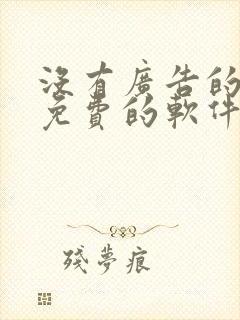 沒有廣告的
免費的軟件
殘夢痕